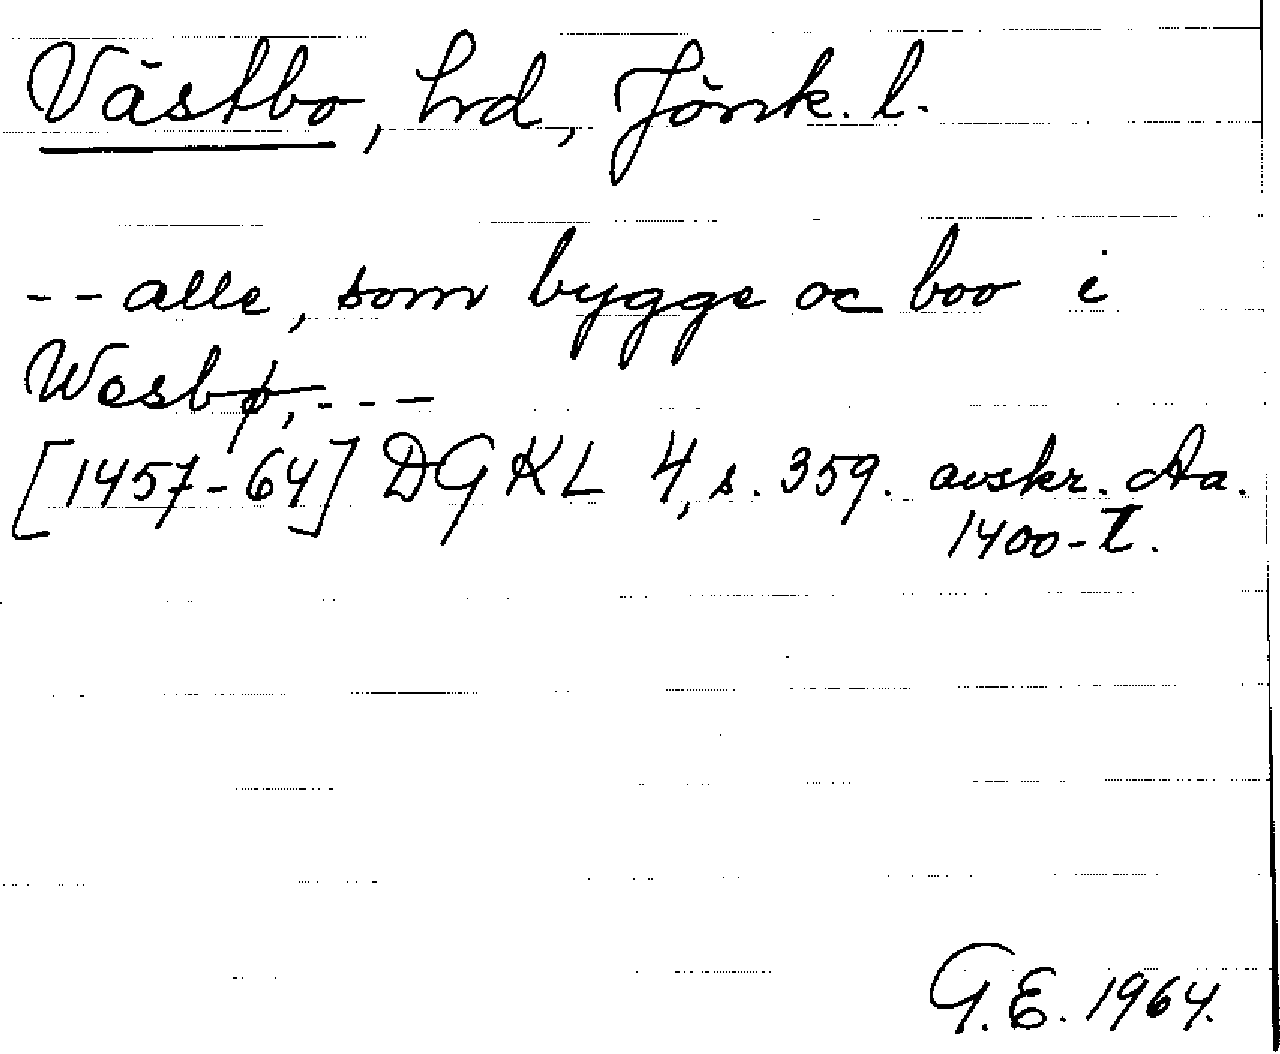 Västbo, hrd, Jönk. l.
-- alle, som bygge oc boo i
Wesbø, ---
[1457-64] DGKL 4, s. 359. avskr. Aa.
1400-t.
G.E. 1964.